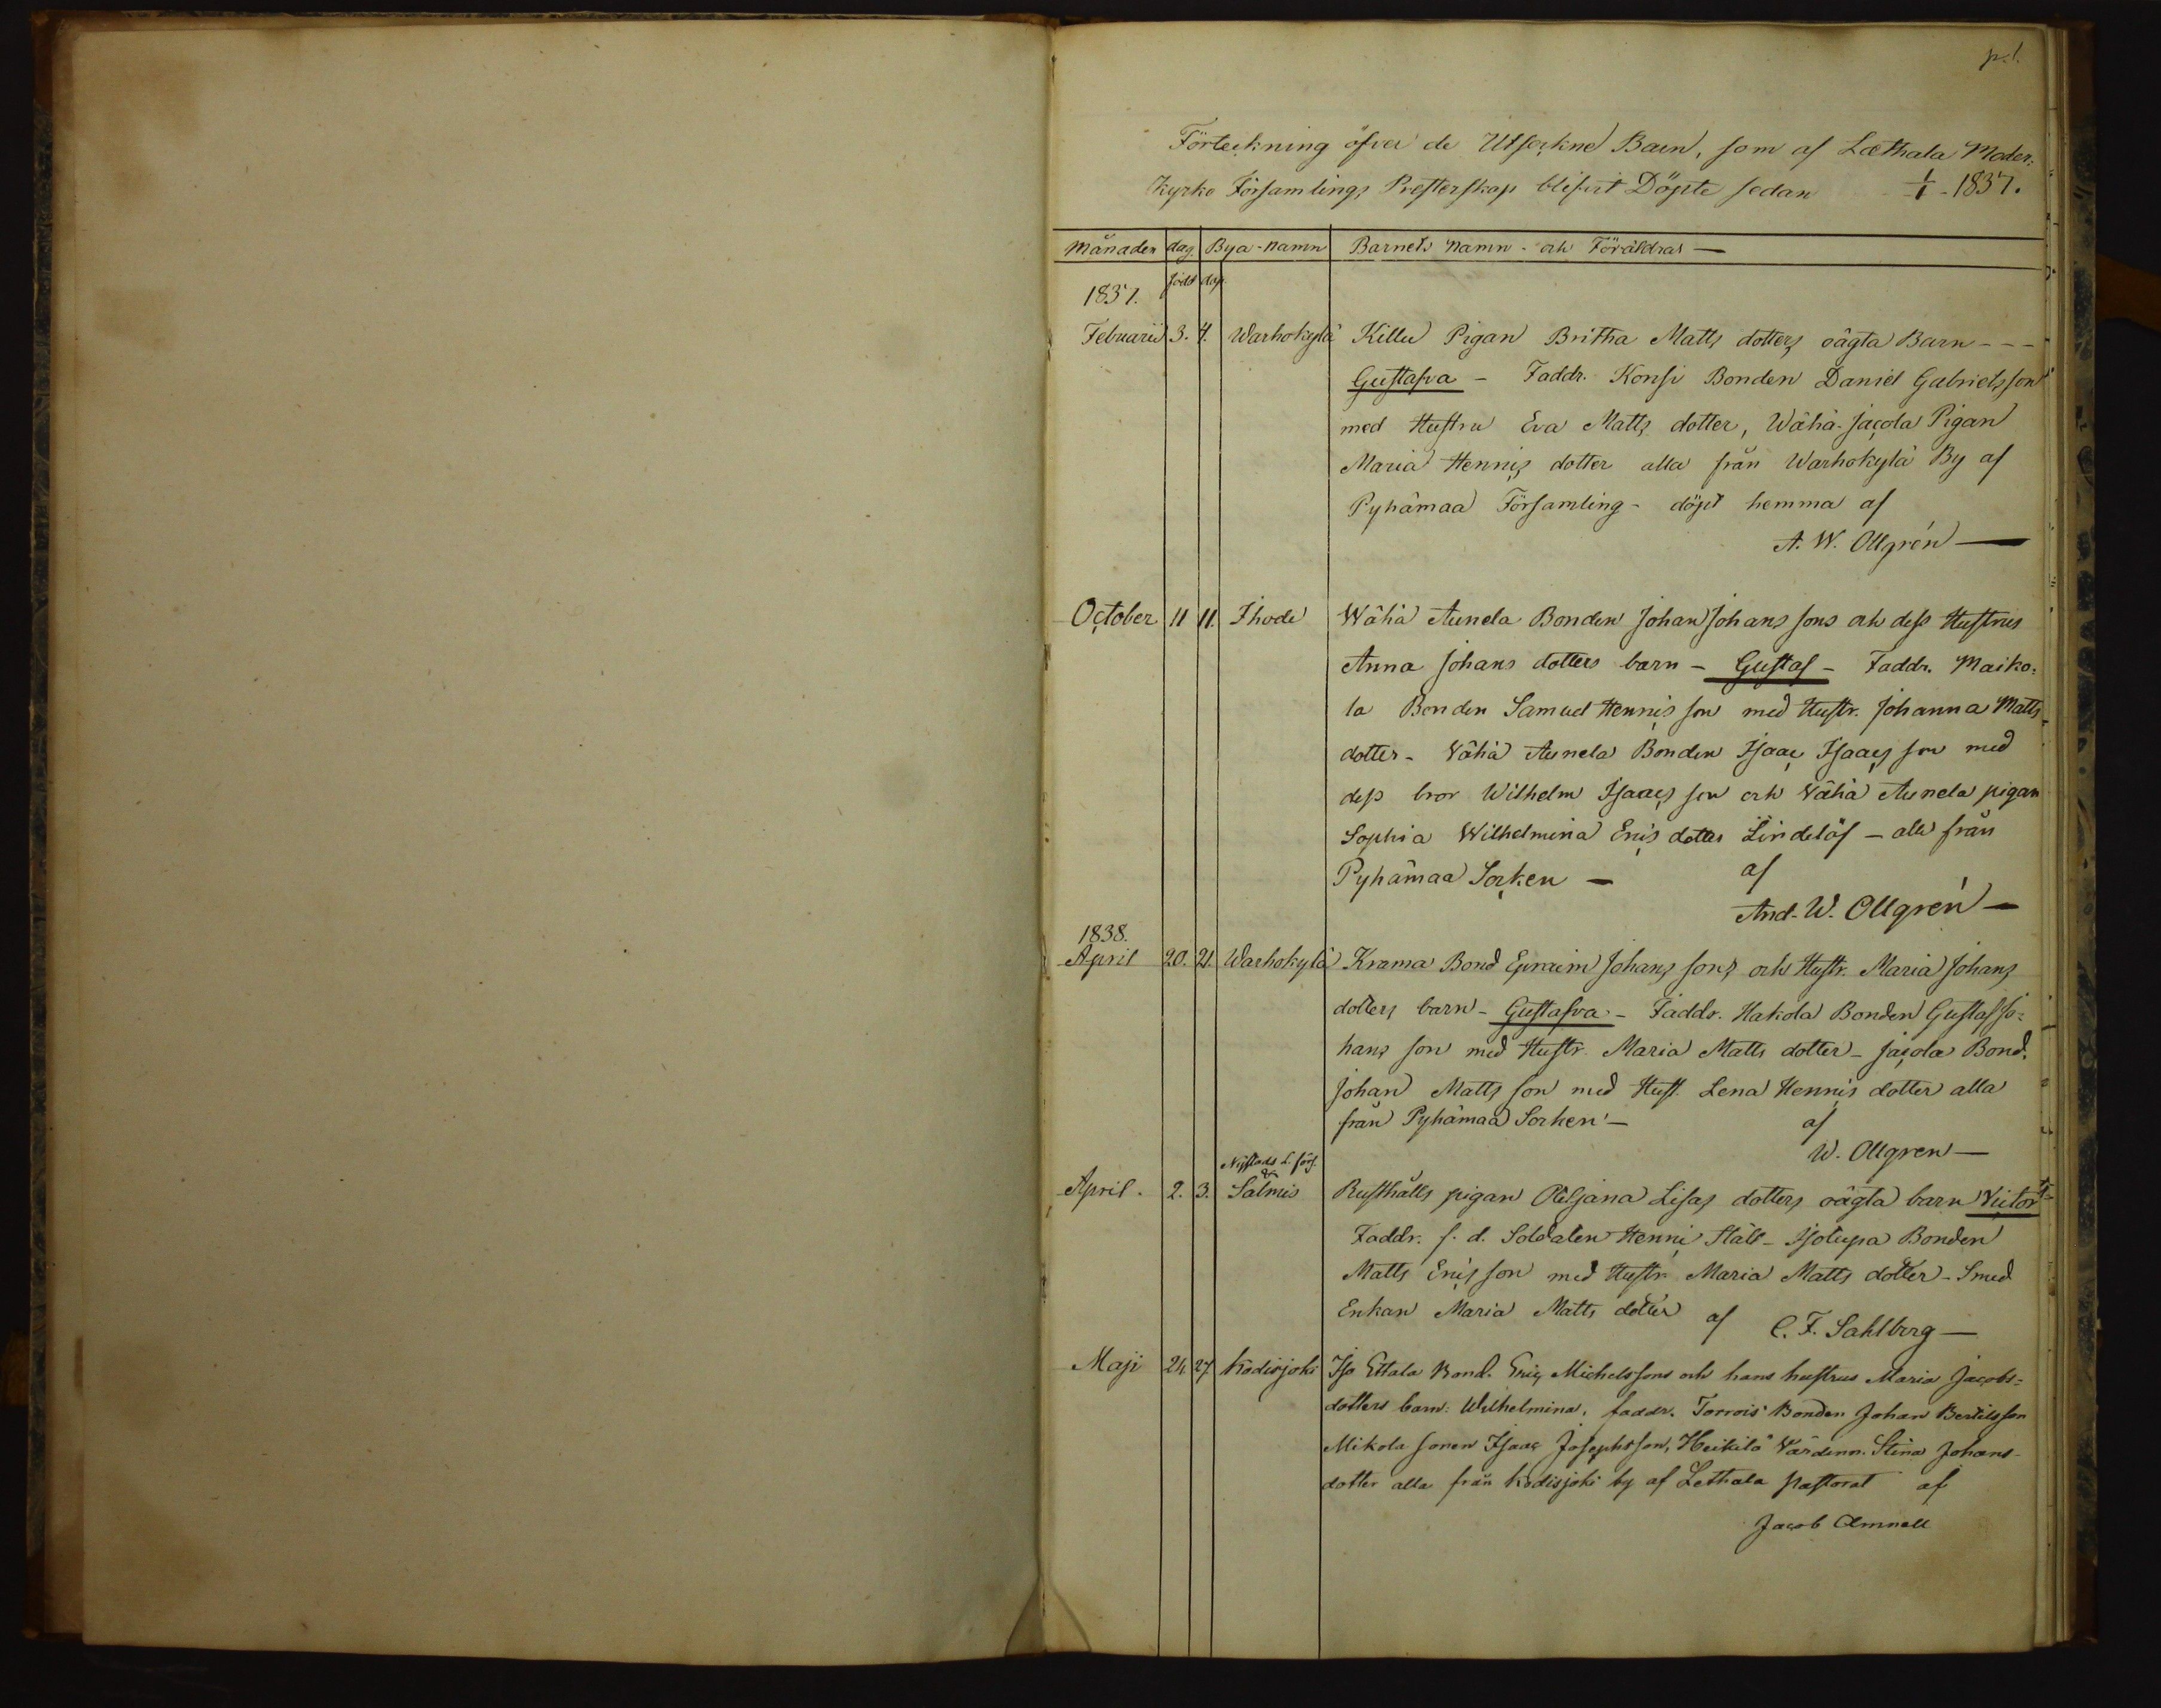 p. 1.
Förteckning öfver de Utsockne Barn, som af Lethala Moder-
Kyrko Församlings Presterskap blifvit Döpte sedan 1/1 1837.
Månaden dag. Bya-namn Barnets namn - och Föräldrar —
född döp
1837.
Februarii 3. 4. Warhokylä Killu Pigan Britha Matts dotters oägta Barn - - -
Gustafva - Faddr. Konsi Bonden Daniel Gabrielsson
med Hustru Eva Matts dotter, Wähä-Jacola Pigan
Maria Henrics dotter alla från Warhokylä By af
Pyhämaa Församling - döpt hemma af
A. W. Ollgrén —
October 11 11. Ihode Wähä Aunela Bonden Johan Johans sons och dess Hustrus
Anna Johans dotters barn - Gustaf - Faddr. Maiko-
la Bonden Samuel Henrics son med Hustr. Johanna Matts
dotter - Vähä Aunela Bonden Isaac Isaacs son med
dess bror Wilhelm Isaacs son och Vähä Aunela pigan
Sophia Wilhelmina Erics dotter Lindelöf - alla från
Pyhämaa Socken — af
And. W. Ollgrén —
1838.
April 20. 21. Warhokylä Krama Bond Epraim Johans sons och Hustr. Maria Johans
dotters barn - Gustafva - Faddr. Hakola Bonden Gustaf Jo-
hans son med Hustr. Maria Matts dotter - Jacola Bond.
Johan Matts son med Hust. Lena Henrics dotter alla
från Pyhämaa Socken - af
W. Ollgren —
Nystads L. förs.
April. 2. 3. Salmis Rusthålls pigan Juliana Lisas dotters oägta barn Victor
Faddr. f. d. Soldaten Henric Stålt - Isotupa Bonden
Matts Erics son med Hustr. Maria Matts dotter - Smed
Enkan Maria Matts dotter af C. F. Sahlberg —
Maji 24. 27. Kodisjoki Iso Ettala Bond. Eric Michelssons och hans hustrus Maria Jacobs-
dotters barn: Wilhelmina. faddr. Torrois Bonden Johan Bertilsson
Mikola sonen Isaac Josephsson, Heikilä Värdinn. Stina Johans-
dotter alla från Kodisjoki by af Lethala pastorat af
Jacob Amnell